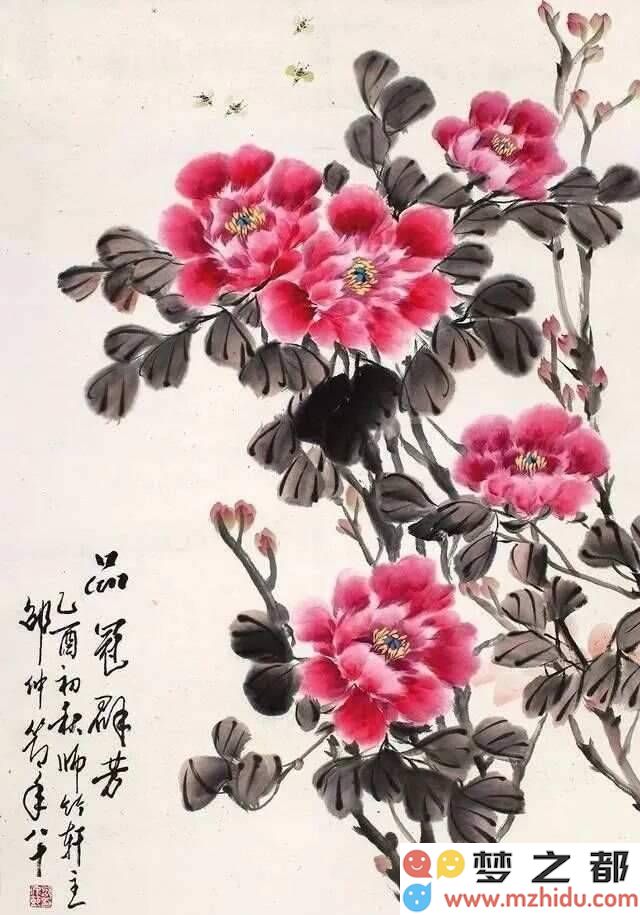 品冠群芳
乙酉初秋师竹轩主
邵仲节年八十
梦之都
www.mzhidu.com